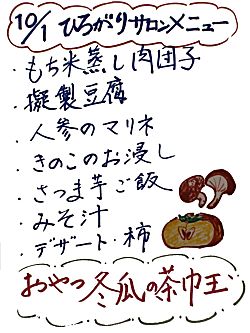 10/1 ひろがりサロンメニュー
・もち米蒸し肉団子
・擬製豆腐
・人参のマリネ
・きのこのお浸し
・さつま芋ご飯
・みそ汁
・デザート・柿
おやつ 冬瓜の茶巾玉